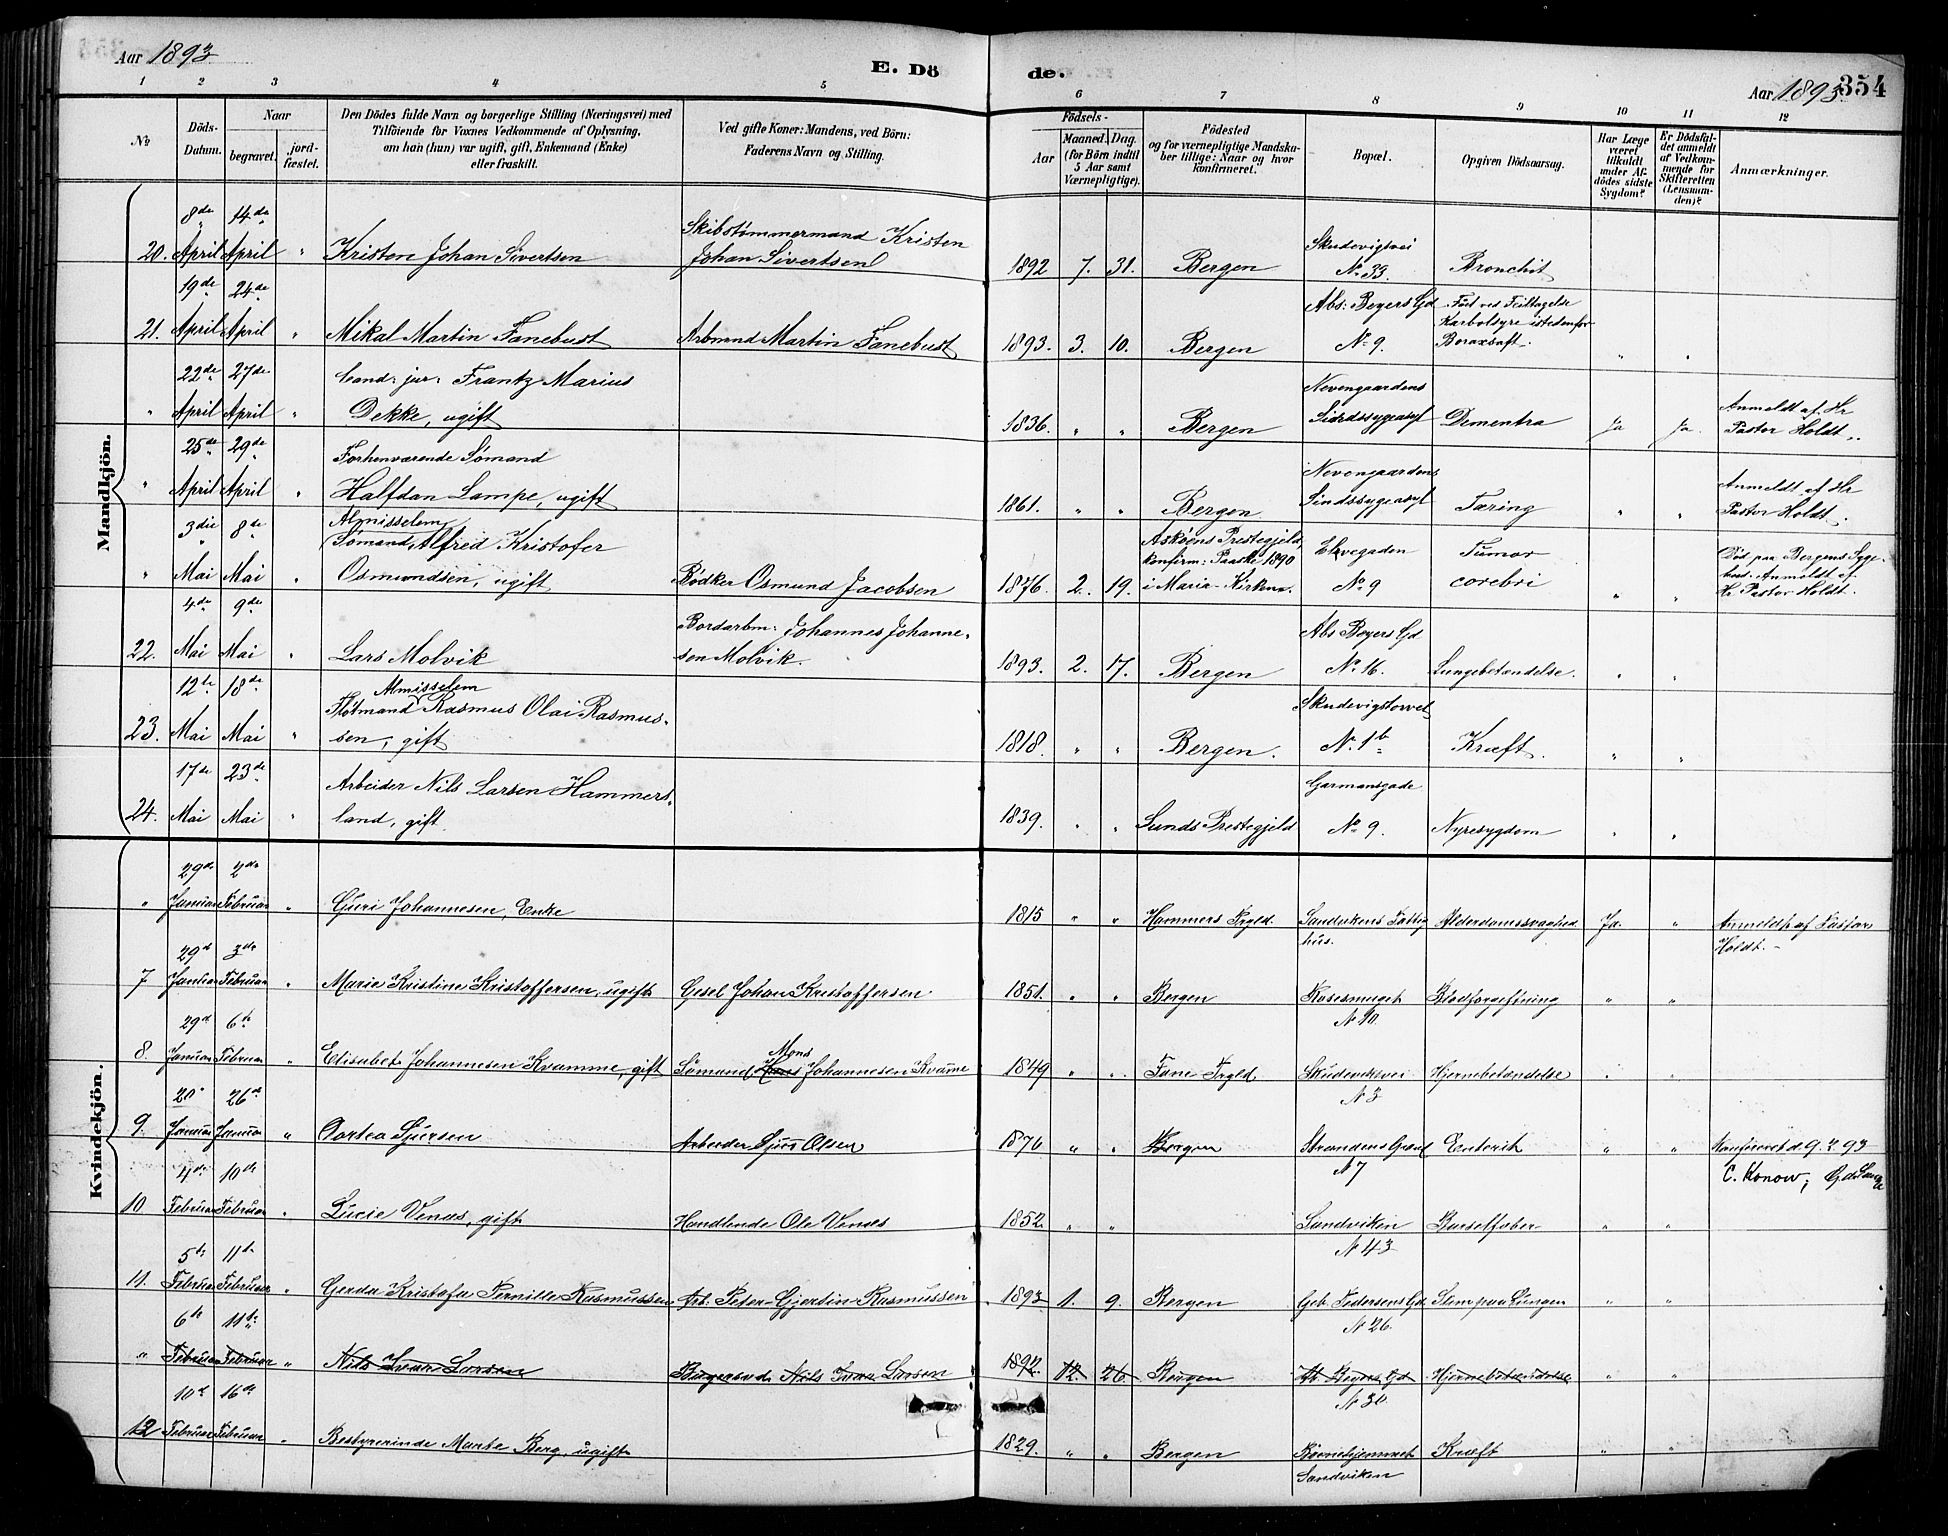 Aar 1893
E. Dö
de.
Aar 1893. 354
1 2 3 4 5 6 7 8 9 10 11 12
No.
Döds-
Datum.
Naar
begravet.
jord-
fæstet.
Den Dödes fulde Navn og borgerlige Stilling (Næringsvei) med
Tilföiende for Voxnes Vedkommende af Oplysning,
om han (hun) var ugift, gift, Enkemand (Enke)
eller fraskilt.
Ved gifte Koner: Mandens, ved Börn:
Faderens Navn og Stilling.
Födsels-
Aar
Maaned. Dag.
(for Börn indtil
5 Aar samt
Værnepligtige).
Födested
og for værnepligtige Mandska-
ber tillige: Naar og hvor
konfirmeret.
Bopæl.
Opgiven Dödsaarsag.
Har Læge
været
tilkaldt
under Af-
dödes sidste
Sygdom?
Er Dödsfal-
det anmeldt
af Vedkom-
mende for
Skifteretten
(Lensman-
den)?
Anmærkninger.
Mandkjön.
8de 14de
20. April April " Kristen Johan Sivertsen
Skibstømmermand Kristen
Johan Sivertsen
1892 7. 31. Bergen
Skudevigsvei
No 33.
Bronchit
19de 24de
21. April April " Mikal Martin Fanebust
Arbmand Martin Fanebust
1893. 3. 10. Bergen
Abs: Beyers Gd
No 9.
Død ved Feiltagelse
Karbolsyre istedenfor
Boraxsaft.
" "
22de 27de
" April April " Cand: jur: Frantz Marius
Dekke, ugift
1836. " " Bergen
Nevengaardens
Sindssygeasyl
Dementia
Ja Ja.
Anmeldt af Hr
Pastor Holdt.
25de 29de
" April April " Forhenværende Sømand
Halfdan Lampe, ugift
1861. " " Bergen
Nevengaardens
Sindssygeasyl
Tæring
" "
Anmeldt af Hr
Pastor Holdt.
3die 8de
" Mai Mai " Almisselem
Sømand Alfred Kristofer
Osmundsen, ugift
Bødker Osmund Jacobsen
1876. 2. 19.
Askøens Prestegjeld,
konfirm: Paaske 1890
i Maria-Kirken.
Elvegaden
No 9
Tumor
cerebri
" "
Død paa Bergens Syge-
hus. Anmeldt af
Hr Pastor Holdt.
4de 9de
22. Mai Mai " Lars Molvik
Bordarbm: Johannes Johanne-
sen Molvik.
1893. 2. 17. Bergen
Abs Beyers Gd
No 16.
Lungebetændelse.
" "
12te 18de
23. Mai Mai " Almisselem
Fløtmand Rasmus Olai Rasmus-
sen, gift
1818. " " Bergen.
Skudevigstorvet
No 1b
Kræft.
" "
17de 23de
24. Mai Mai " Arbeider Nils Larsen Hammers-
land, gift
1839. " " Sunds Prestegjeld
Garmansgade
No 9.
Nyresygdom
" "
Kvindekjön.
29de 2den
" Januar Februar " Guri Johannesen, Enke
1815 " " Hammers Prgld.
Sandvikens Fattig
hus.
Alderdomssvaghed.
Ja. "
Anmeldt af Pastor
Holdt. -
29d 3de
7 Januar Februar " Marie Kristine Kristoffersen, ugift
Gesel Johan Kristoffersen
1851. " " Bergen
Rosesmuget
N 10.
Blodforgiftning
" "
29d 6te
8. Januar Februar " Elisabet Johannesen Kvamme, gift
Mons
Sømand Hans Johannesen Kvame
1849 " " Fane Prgld
Skudeviksvei
N 3
Hjernebetændelse
" "
20 26de
9. Januar Januar " Dortea Sjursen
Arbeider Sjur Olsen
1870 " " Bergen
Strandens Gaard
N 7
Enterit
" "
Konfireret d. 9. 2 93
C. Konow;
4de 10de
10 Februar Februar " Lucie Venæs, gift
Handlende Ole Venæs
1852 " "
Sandviken
N 43
Barselfeber
" "
5te 11te
11. Februar Februar " Gerda Kristofa Pernille Rasmussen
Arb. Peter Gjerdin Rasmussen
1893 1. 9. Bergen
Geb. Pedersens Gd
N 26.
Slim paa Lungen
" "
6te 11te
" Februar Februar " Nils Ivar Larsen
Bøgersvd. Nils Ivar Larsen
1892. 12. 26 Bergen
Ab. Beyers Gd
N 30.
Hjernebetændelse
" "
10de 16de
12 Februar Februar " Bestyrerinde Marte Berg, ugift
1829. " " Bergen
Børnehjemmet
Sandviken
Kræft
" "